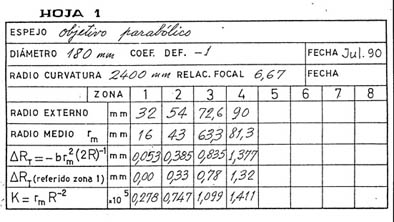 HOJA 1
ESPEJO objetivo parabólico
DIÁMETRO 180 mm COEF. DEF. -1 FECHA Jul. 90
RADIO CURVATURA 2400 mm RELAC. FOCAL 6,67 FECHA
ZONA 1 2 3 4 5 6 7 8
RADIO EXTERNO mm 32 54 72,6 90
RADIO MEDIO rm mm 16 43 63,3 81,3
ΔRT=-brm²(2R)⁻¹ mm 0,053 0,385 0,835 1,377
ΔRT(referido zona 1) mm 0,00 0,33 0,78 1,32
K=rmR⁻² ×10⁵ 0,278 0,747 1,099 1,411